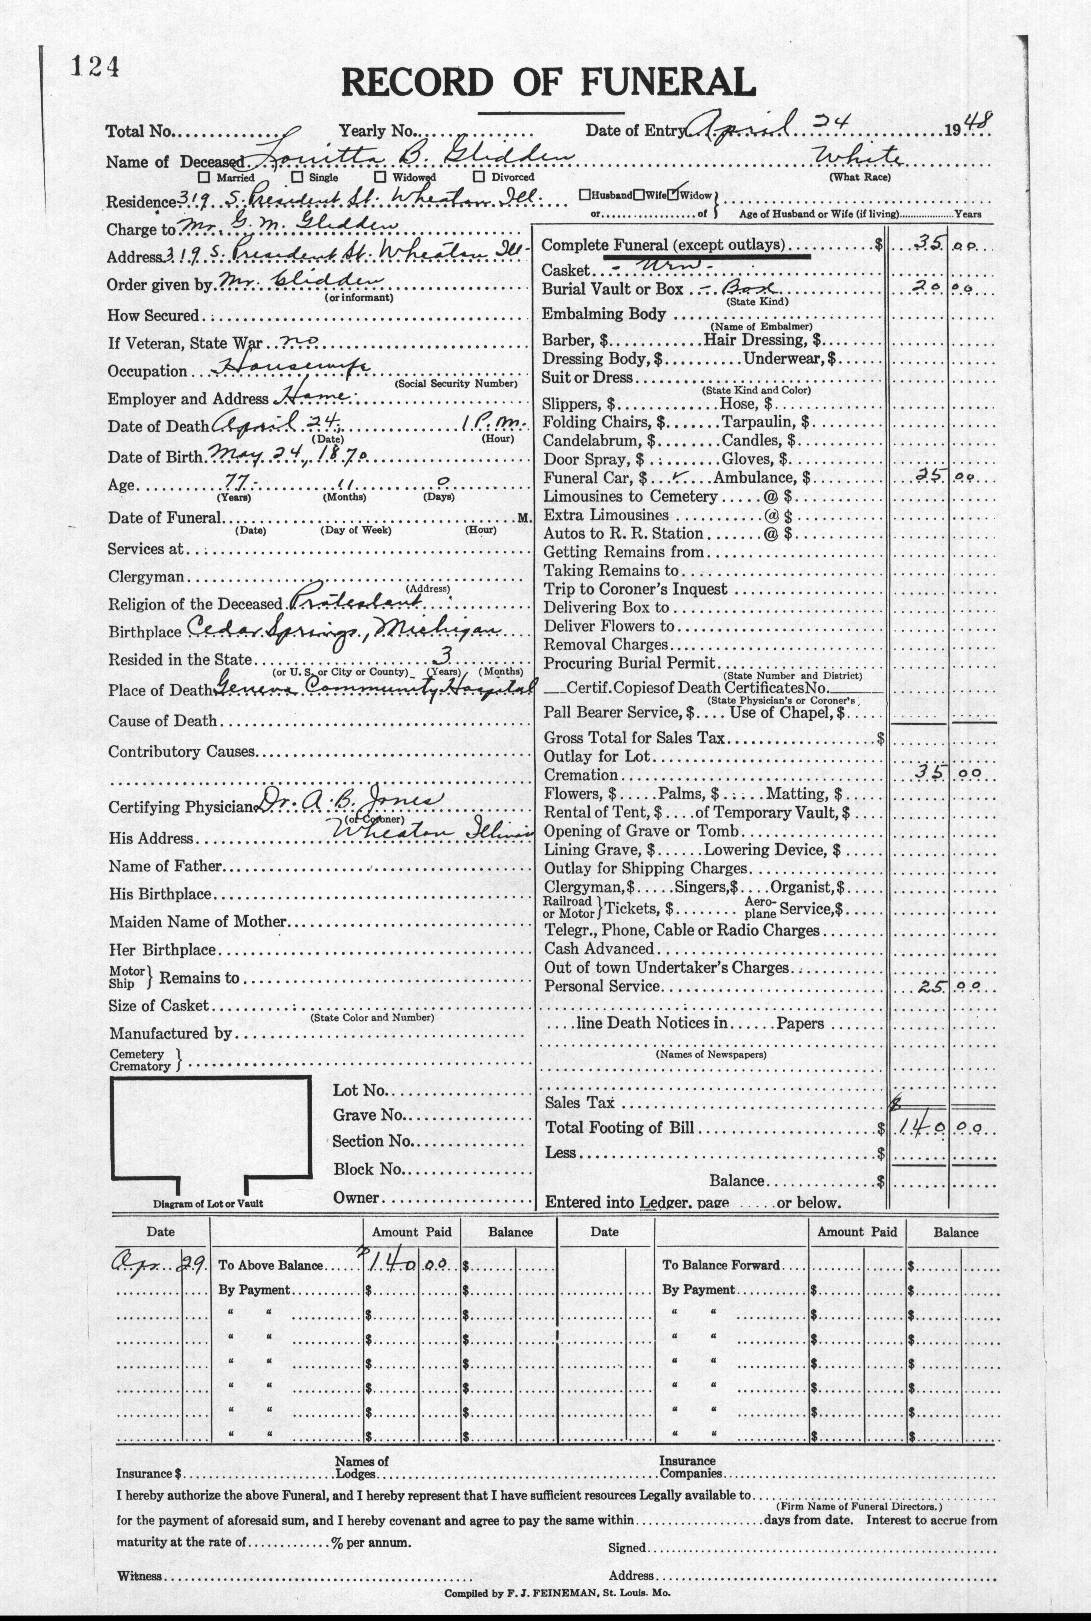 124
RECORD OF FUNERAL
Total No. Yearly No. Date of Entry April 24 1948
Name of Deceased B. Glidden White
☐ Married ☐ Single ☐ Widowed ☐ Divorced (What Race)
Residence 319 S. President St. Wheaton Ill. ☐Husband☐Wife☑Widow
or of Age of Husband or Wife (if living) Years
Charge to Mr. G. M. Glidden
Address 319 S. President St. Wheaton Ill
Order given by Mr. Glidden
(or informant)
How Secured
If Veteran, State War no
Occupation Housewife
(Social Security Number)
Employer and Address Home
Date of Death April 24, 1 P.M.
(Date) (Hour)
Date of Birth May 24, 1870
Age 77 11 0
(Years) (Months) (Days)
Date of Funeral M.
(Date) (Day of Week) (Hour)
Services at
Clergyman
(Address)
Religion of the Deceased Protestant
Birthplace Cedar Springs, Michigan
Resided in the State 3
(or U. S. or City or County) (Years) (Months)
Place of Death Geneva Community Hospital
Cause of Death
Contributory Causes
Certifying Physician Dr. A. B. Jones
(or Coroner)
His Address Wheaton Illinois
Name of Father
His Birthplace
Maiden Name of Mother
Her Birthplace
Motor
Ship } Remains to
Size of Casket
(State Color and Number)
Manufactured by
Cemetery
Crematory }
Lot No.
Grave No.
Section No.
Block No.
Owner
Diagram of Lot or Vault
Complete Funeral (except outlays) $ 35 00
Casket - Urn -
Burial Vault or Box - Box 20 00
(State Kind)
Embalming Body
(Name of Embalmer)
Barber, $ Hair Dressing, $
Dressing Body, $ Underwear, $
Suit or Dress
(State Kind and Color)
Slippers, $ Hose, $
Folding Chairs, $ Tarpaulin, $
Candelabrum, $ Candles, $
Door Spray, $ Gloves, $
Funeral Car, $ ✓ Ambulance, $ 25 00
Limousines to Cemetery @ $
Extra Limousines @ $
Autos to R. R. Station @ $
Getting Remains from
Taking Remains to
Trip to Coroner's Inquest
Delivering Box to
Deliver Flowers to
Removal Charges
Procuring Burial Permit
(State Number and District)
Certif.Copiesof Death CertificatesNo.
(State Physician's or Coroner's
Pall Bearer Service, $ Use of Chapel, $
Gross Total for Sales Tax $
Outlay for Lot
Cremation 35 00
Flowers, $ Palms, $ Matting, $
Rental of Tent, $ of Temporary Vault, $
Opening of Grave or Tomb
Lining Grave, $ Lowering Device, $
Outlay for Shipping Charges
Clergyman,$ Singers,$ Organist,$
Railroad
or Motor } Tickets, $ Aero-
plane Service,$
Telegr., Phone, Cable or Radio Charges
Cash Advanced
Out of town Undertaker's Charges
Personal Service 25 00
line Death Notices in Papers
(Names of Newspapers)
Sales Tax
Total Footing of Bill $ 140 00
Less $
Balance $
Entered into Ledger, page or below.
Date Amount Paid Balance Date Amount Paid Balance
Apr. 29 To Above Balance $140 00 $ To Balance Forward $
By Payment $ $ By Payment $ $
" " $ $ " " $ $
" " $ $ " " $ $
" " $ $ " " $ $
" " $ $ " " $ $
" " $ $ " " $ $
" " $ $ " " $ $
Insurance $ Names of Lodges Insurance Companies
I hereby authorize the above Funeral, and I hereby represent that I have sufficient resources Legally available to
(Firm Name of Funeral Directors.)
for the payment of aforesaid sum, and I hereby covenant and agree to pay the same within days from date. Interest to accrue from
maturity at the rate of % per annum.
Signed
Witness Address
Compiled by F. J. FEINEMAN, St. Louis. Mo.